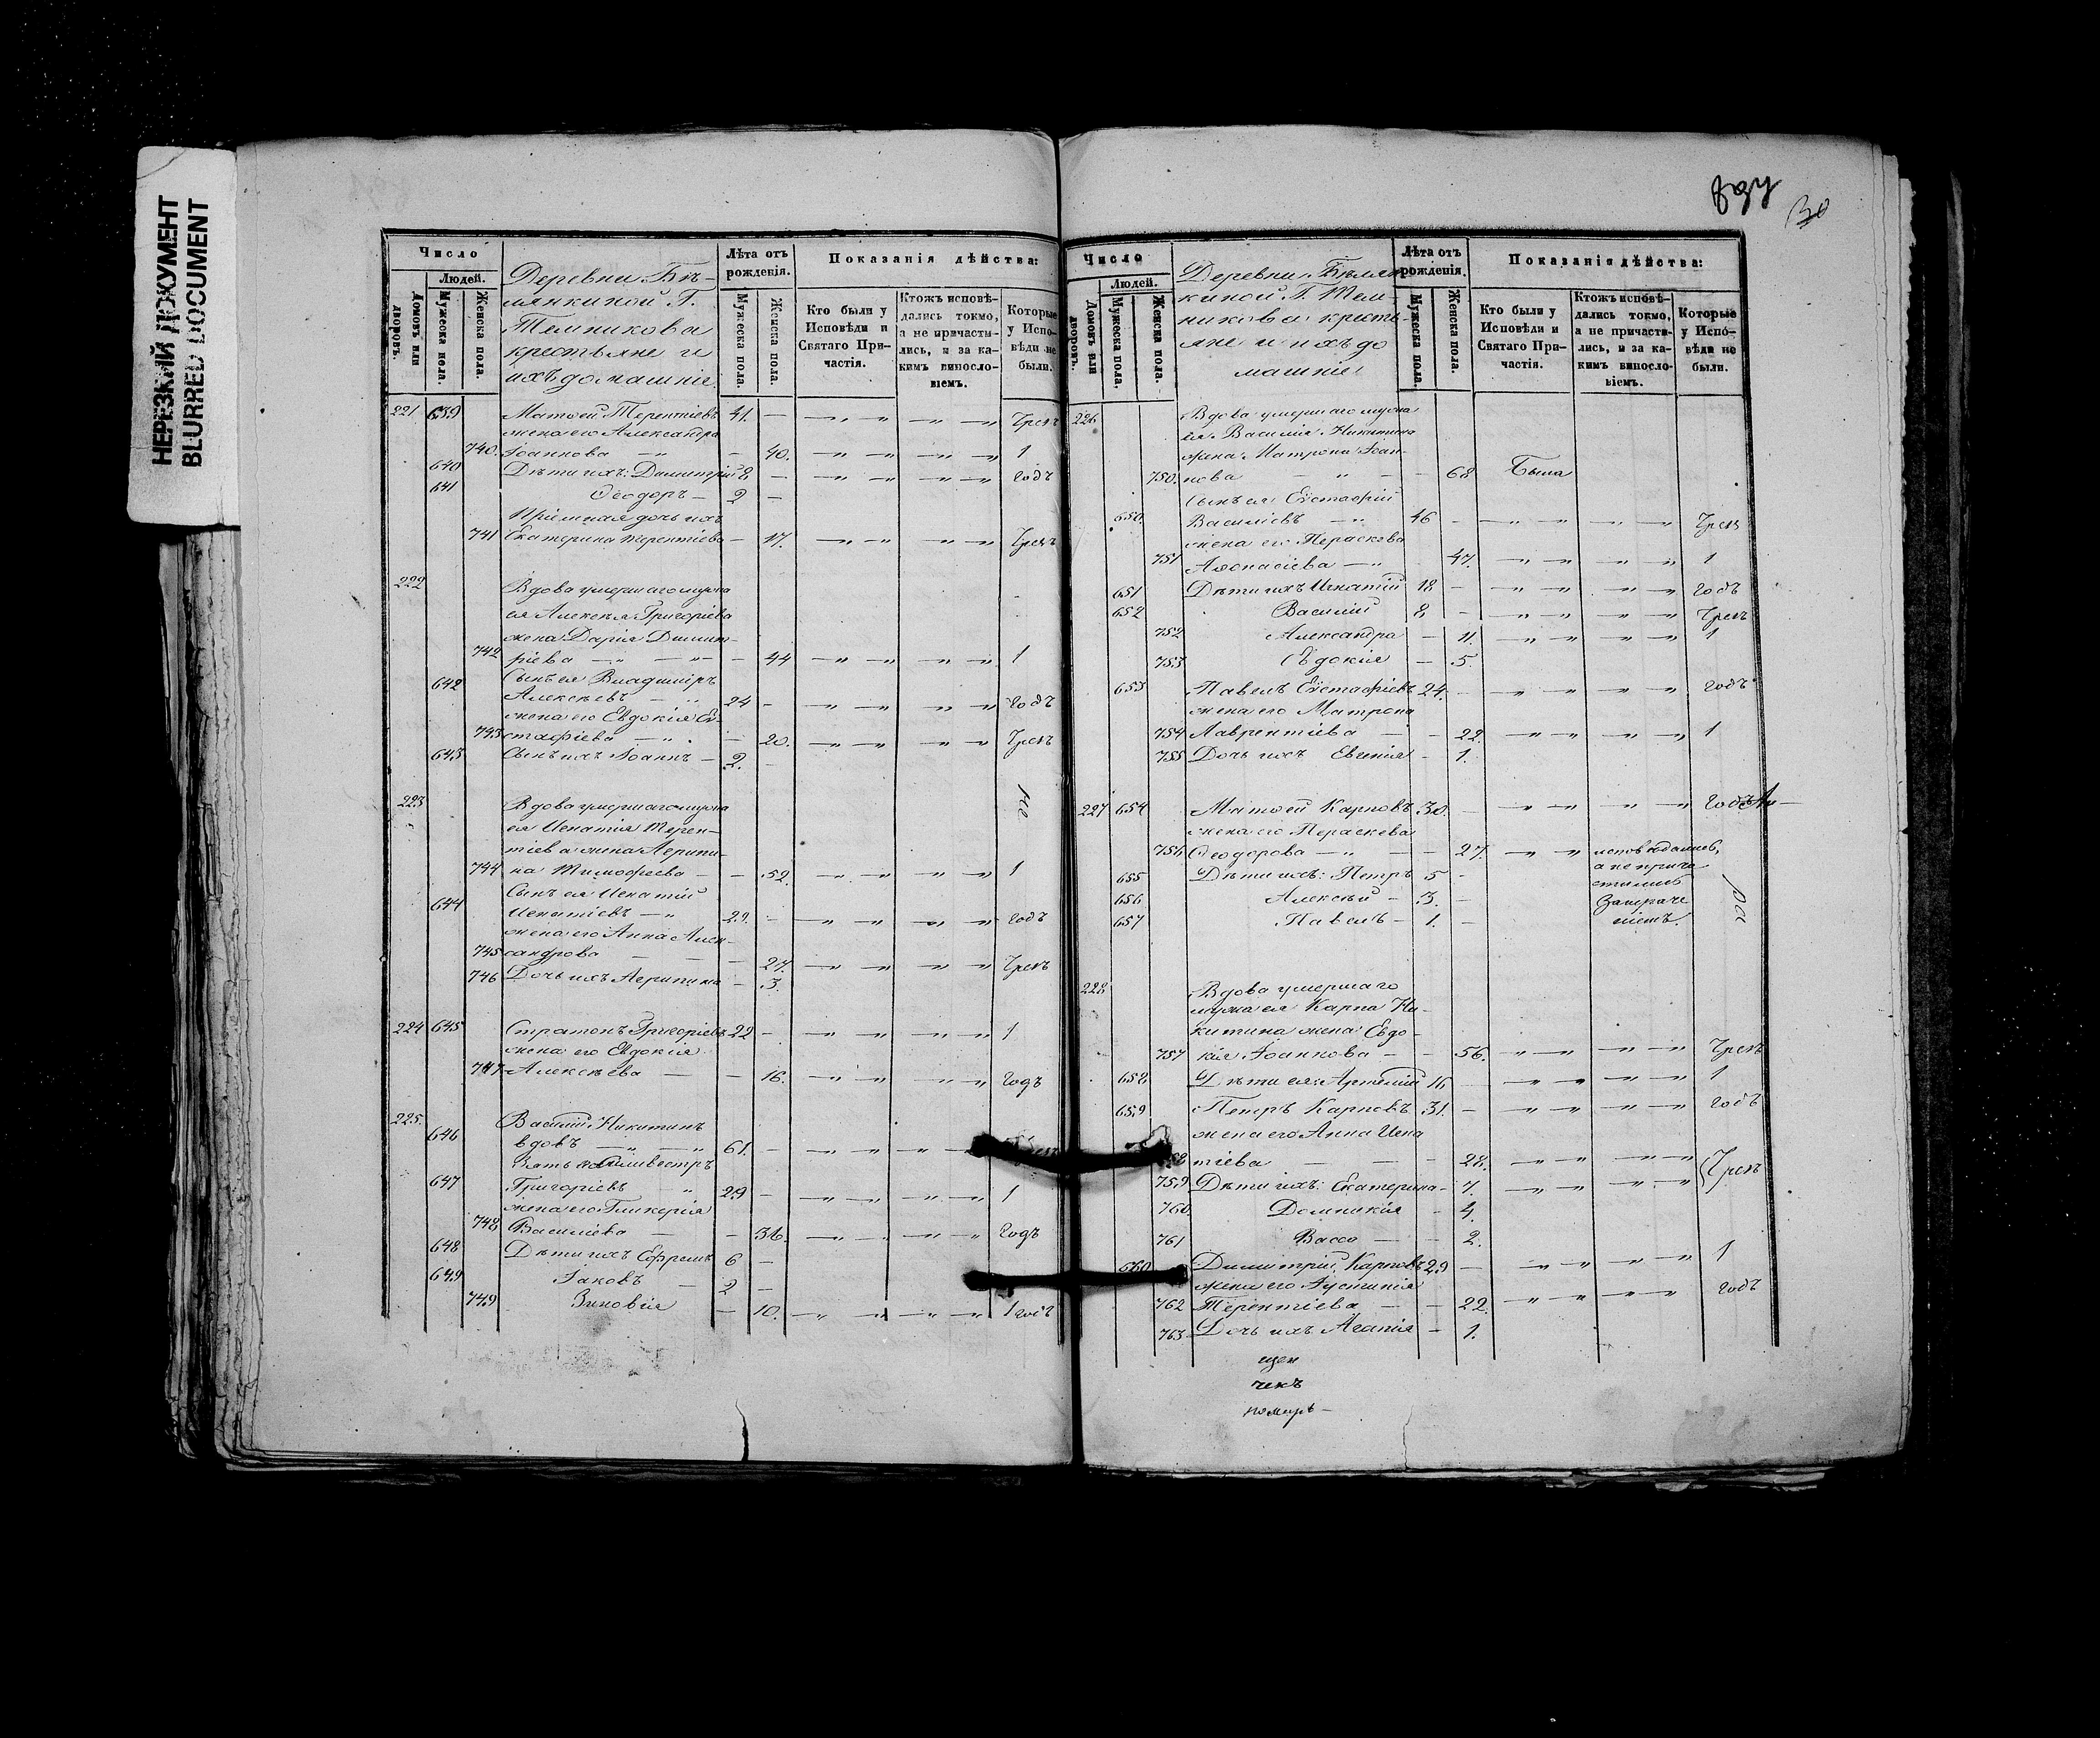 НЕРЕЗКИЙ ДОКУМЕНТ
BLURRED DOCUMENT
Число
Людей.
Домовъ или дворовъ.
Мужеска пола.
Женска пола.
Деревни Бѣ-
лянкиной Г.
Темникова
крестьяне и
ихъ домашніе
Лѣта отъ рожденія.
Мужеска пола.
Женска пола.
Показанія дѣйства:
Кто были у Исповѣди и Святаго При-
частія.
Ктожъ исповѣ-
дались токмо,
а не причасти-
лись, и за ка-
кимъ виносло-
віемъ.
Которые
у Испо-
вѣди не
были.
221 639 Матѳей Терентіевъ 41. Грекъ
жена его Александра
740. Іоаннова 40. 1
640 Дѣти ихъ: Димитрій 8 годъ
641 Ѳеодоръ 2
Пріемная дочь ихъ
741 Екатерина Терентіева 17.
222 Вдова умершаго мужа
ея Алексѣя Григоріева
жена Дарія Димит-
742 ріева 44 1
Сынъ ея Владиміръ
642 Алексѣевъ 24 годъ
жена его Евдокія Ев-
743 стафіева 20.
643 Сынъ ихъ Іоаннъ 2.
223 Вдова умершаго мужа
ея Игнатія Терен-
тіева жена Агрипи-
744 на Тимофеева 52. 1
Сынъ ея Игнатій
644 Игнатіевъ 29. годъ
жена его Анна Алек-
745 сандрова 27.
746 Дочь ихъ Агрипина 3.
224 645 Стратонъ Григоріевъ 22 1
жена его Евдокія
747 Алексѣева 16. годъ
225. Василій Никитинъ
646 вдовъ 61.
Зять его Сильвестръ
647 Григоріевъ 29 1
жена его Гликерія
748 Василіева 31. годъ
648 Дѣти ихъ Ефремъ 6
649 Іаковъ 2
749 Зиновія 10. 1 годъ
30
Число
Людей.
Домовъ или дворовъ.
Мужеска пола.
Женска пола.
Деревни Бѣлян-
киной Г. Тем-
никова кресть-
яне и ихъ до
машніе
Лѣта отъ рожденія.
Мужеска пола.
Женска пола.
Показанія дѣйства:
Кто были у Исповѣди и Святаго При-
частія.
Ктожъ исповѣ-
дались токмо,
а не причасти-
лись, и за ка-
кимъ виносло-
віемъ.
Которые
у Испо-
вѣди не
были.
226 Вдова умершаго мужа
ея Василія Никитина
жена Матрона Іоан-
750. нова 68 Была
Сынъ ея Евстафій
650. Василіевъ 46
жена его Параскева
751 Аѳонасіева 47. 1
651 Дѣти ихъ Игнатій 18 годъ
652 Василій 8
752 Александра 11. 1
753 Евдокія 5.
653 Павелъ Евстафіевъ 24. годъ
жена его Матрона
754 Лаврентіева 22. 1
755 Дочь ихъ Евгенія 1.
227 654 Матѳей Карповъ 30. годъ
жена его Параскева
756 Ѳеодорова 27. исповѣдались,
а не прича
стились
655 Дѣти ихъ: Петръ 5
656 Алексѣй 3.
657 Павелъ 1.
228 Вдова умершаго
мужа ея Карпа Ни-
китина жена Евдо-
757 кія Іоаннова 56.
658 Дѣти ея: Артемій 16 1
659 Петръ Карповъ 31. годъ
жена его Анна Игна
758 тіева 28.
759 Дѣти ихъ: Екатерина 7.
760 Домникія 4.
761 Васса 2.
660 Димитрій Карповъ 29 1
жена его Іустинія
762 Терентіева 22. годъ
763 Дочь ихъ Агапія 1.